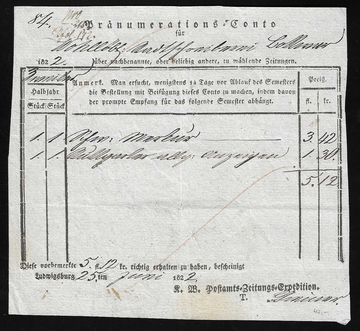 84.
Pränumerations-Conto
für
182 2. über nachbenannte, oder beliebig andere, zu wählende Zeitungen.
Halbjahr.
Stück Stück
Anmerk. Man ersucht, wenigstens 14 Tage vor Ablauf des Semesters
die Bestellung mit Beifügung dieses Conto zu machen, indem davon
der prompte Empfang für das folgende Semester abhängt.
Preiß.
fl. kr.
1. 1. Merkur 3. 42
1. allg. Anzeigen 1. 30.
5. 12
Diese vorbemerkte 5. fl. 12 kr. richtig erhalten zu haben, bescheinigt
Ludwigsburg 25. ten Juni 182 2
K. W. Postamts-Zeitungs-Expedition.
T.